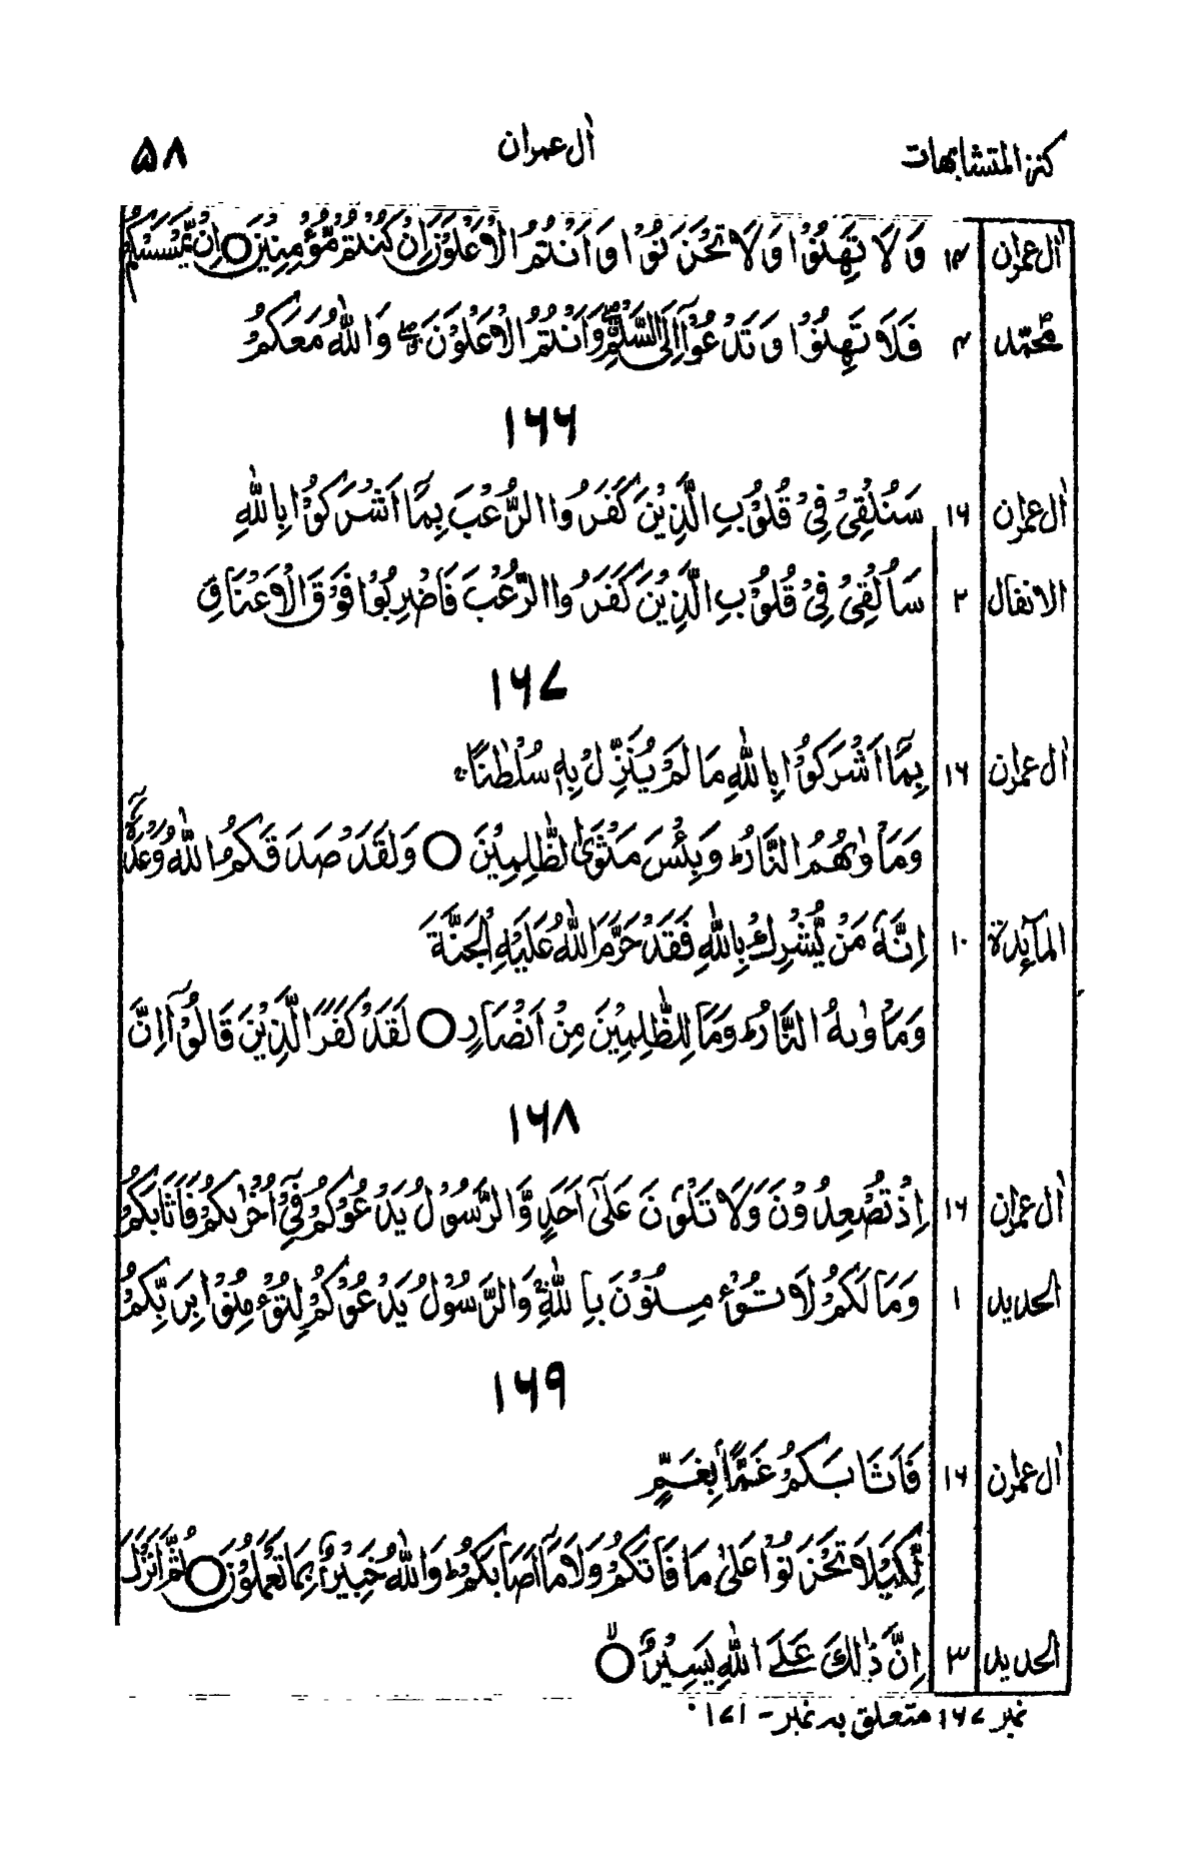 كنز المتشابهات اٰل عمران ۵۸
اٰل عمران ۱۴ وَلَا تَهِنُوْا وَلَا تَحْزَنُوْا وَاَنْتُمُ الْاَعْلَوْنَ اِنْ كُنْتُمْ مُّؤْمِنِيْنَ ○ اِنْ يَّمْسَسْكُمْ
محمّد ۴ فَلَا تَهِنُوْا وَتَدْعُوْٓا اِلَى السَّلْمِ ۖ وَاَنْتُمُ الْاَعْلَوْنَ ۖ وَاللّٰهُ مَعَكُمْ
۱۶۶
اٰل عمران ۱۶ سَنُلْقِيْ فِيْ قُلُوْبِ الَّذِيْنَ كَفَرُوا الرُّعْبَ بِمَآ اَشْرَكُوْا بِاللّٰهِ
الانفال ۲ سَاُلْقِيْ فِيْ قُلُوْبِ الَّذِيْنَ كَفَرُوا الرُّعْبَ فَاضْرِبُوْا فَوْقَ الْاَعْنَاقِ
۱۶۷
اٰل عمران ۱۶ بِمَآ اَشْرَكُوْا بِاللّٰهِ مَا لَمْ يُنَزِّلْ بِهٖ سُلْطٰنًا ۚ
وَمَاْوٰىهُمُ النَّارُ ؕ وَبِئْسَ مَثْوَى الظّٰلِمِيْنَ ○ وَلَقَدْ صَدَقَكُمُ اللّٰهُ وَعْدَهٗٓ
المآئدة ۱۰ اِنَّهٗ مَنْ يُّشْرِكْ بِاللّٰهِ فَقَدْ حَرَّمَ اللّٰهُ عَلَيْهِ الْجَنَّةَ
وَمَاْوٰىهُ النَّارُ ؕ وَمَا لِلظّٰلِمِيْنَ مِنْ اَنْصَارٍ ○ لَقَدْ كَفَرَ الَّذِيْنَ قَالُوْٓا اِنَّ
۱۶۸
اٰل عمران ۱۶ اِذْ تُصْعِدُوْنَ وَلَا تَلْوٗنَ عَلٰٓى اَحَدٍ وَّالرَّسُوْلُ يَدْعُوْكُمْ فِيْٓ اُخْرٰىكُمْ فَاَثَابَكُمْ
الحديد ۱ وَمَا لَكُمْ لَا تُؤْمِنُوْنَ بِاللّٰهِ ۚ وَالرَّسُوْلُ يَدْعُوْكُمْ لِتُؤْمِنُوْا بِرَبِّكُمْ
۱۶۹
اٰل عمران ۱۶ فَاَثَابَكُمْ غَمًّاۢ بِغَمٍّ
لِّكَيْلَا تَحْزَنُوْا عَلٰى مَا فَاتَكُمْ وَلَا مَآ اَصَابَكُمْ ؕ وَاللّٰهُ خَبِيْرٌۢ بِمَا تَعْمَلُوْنَ ○ ثُمَّ اَنْزَلَ
الحديد ۳ اِنَّ ذٰلِكَ عَلَى اللّٰهِ يَسِيْرٌ ○ لا
نمبر ۱۶۷ متعلق به نمبر - ۱۷۱